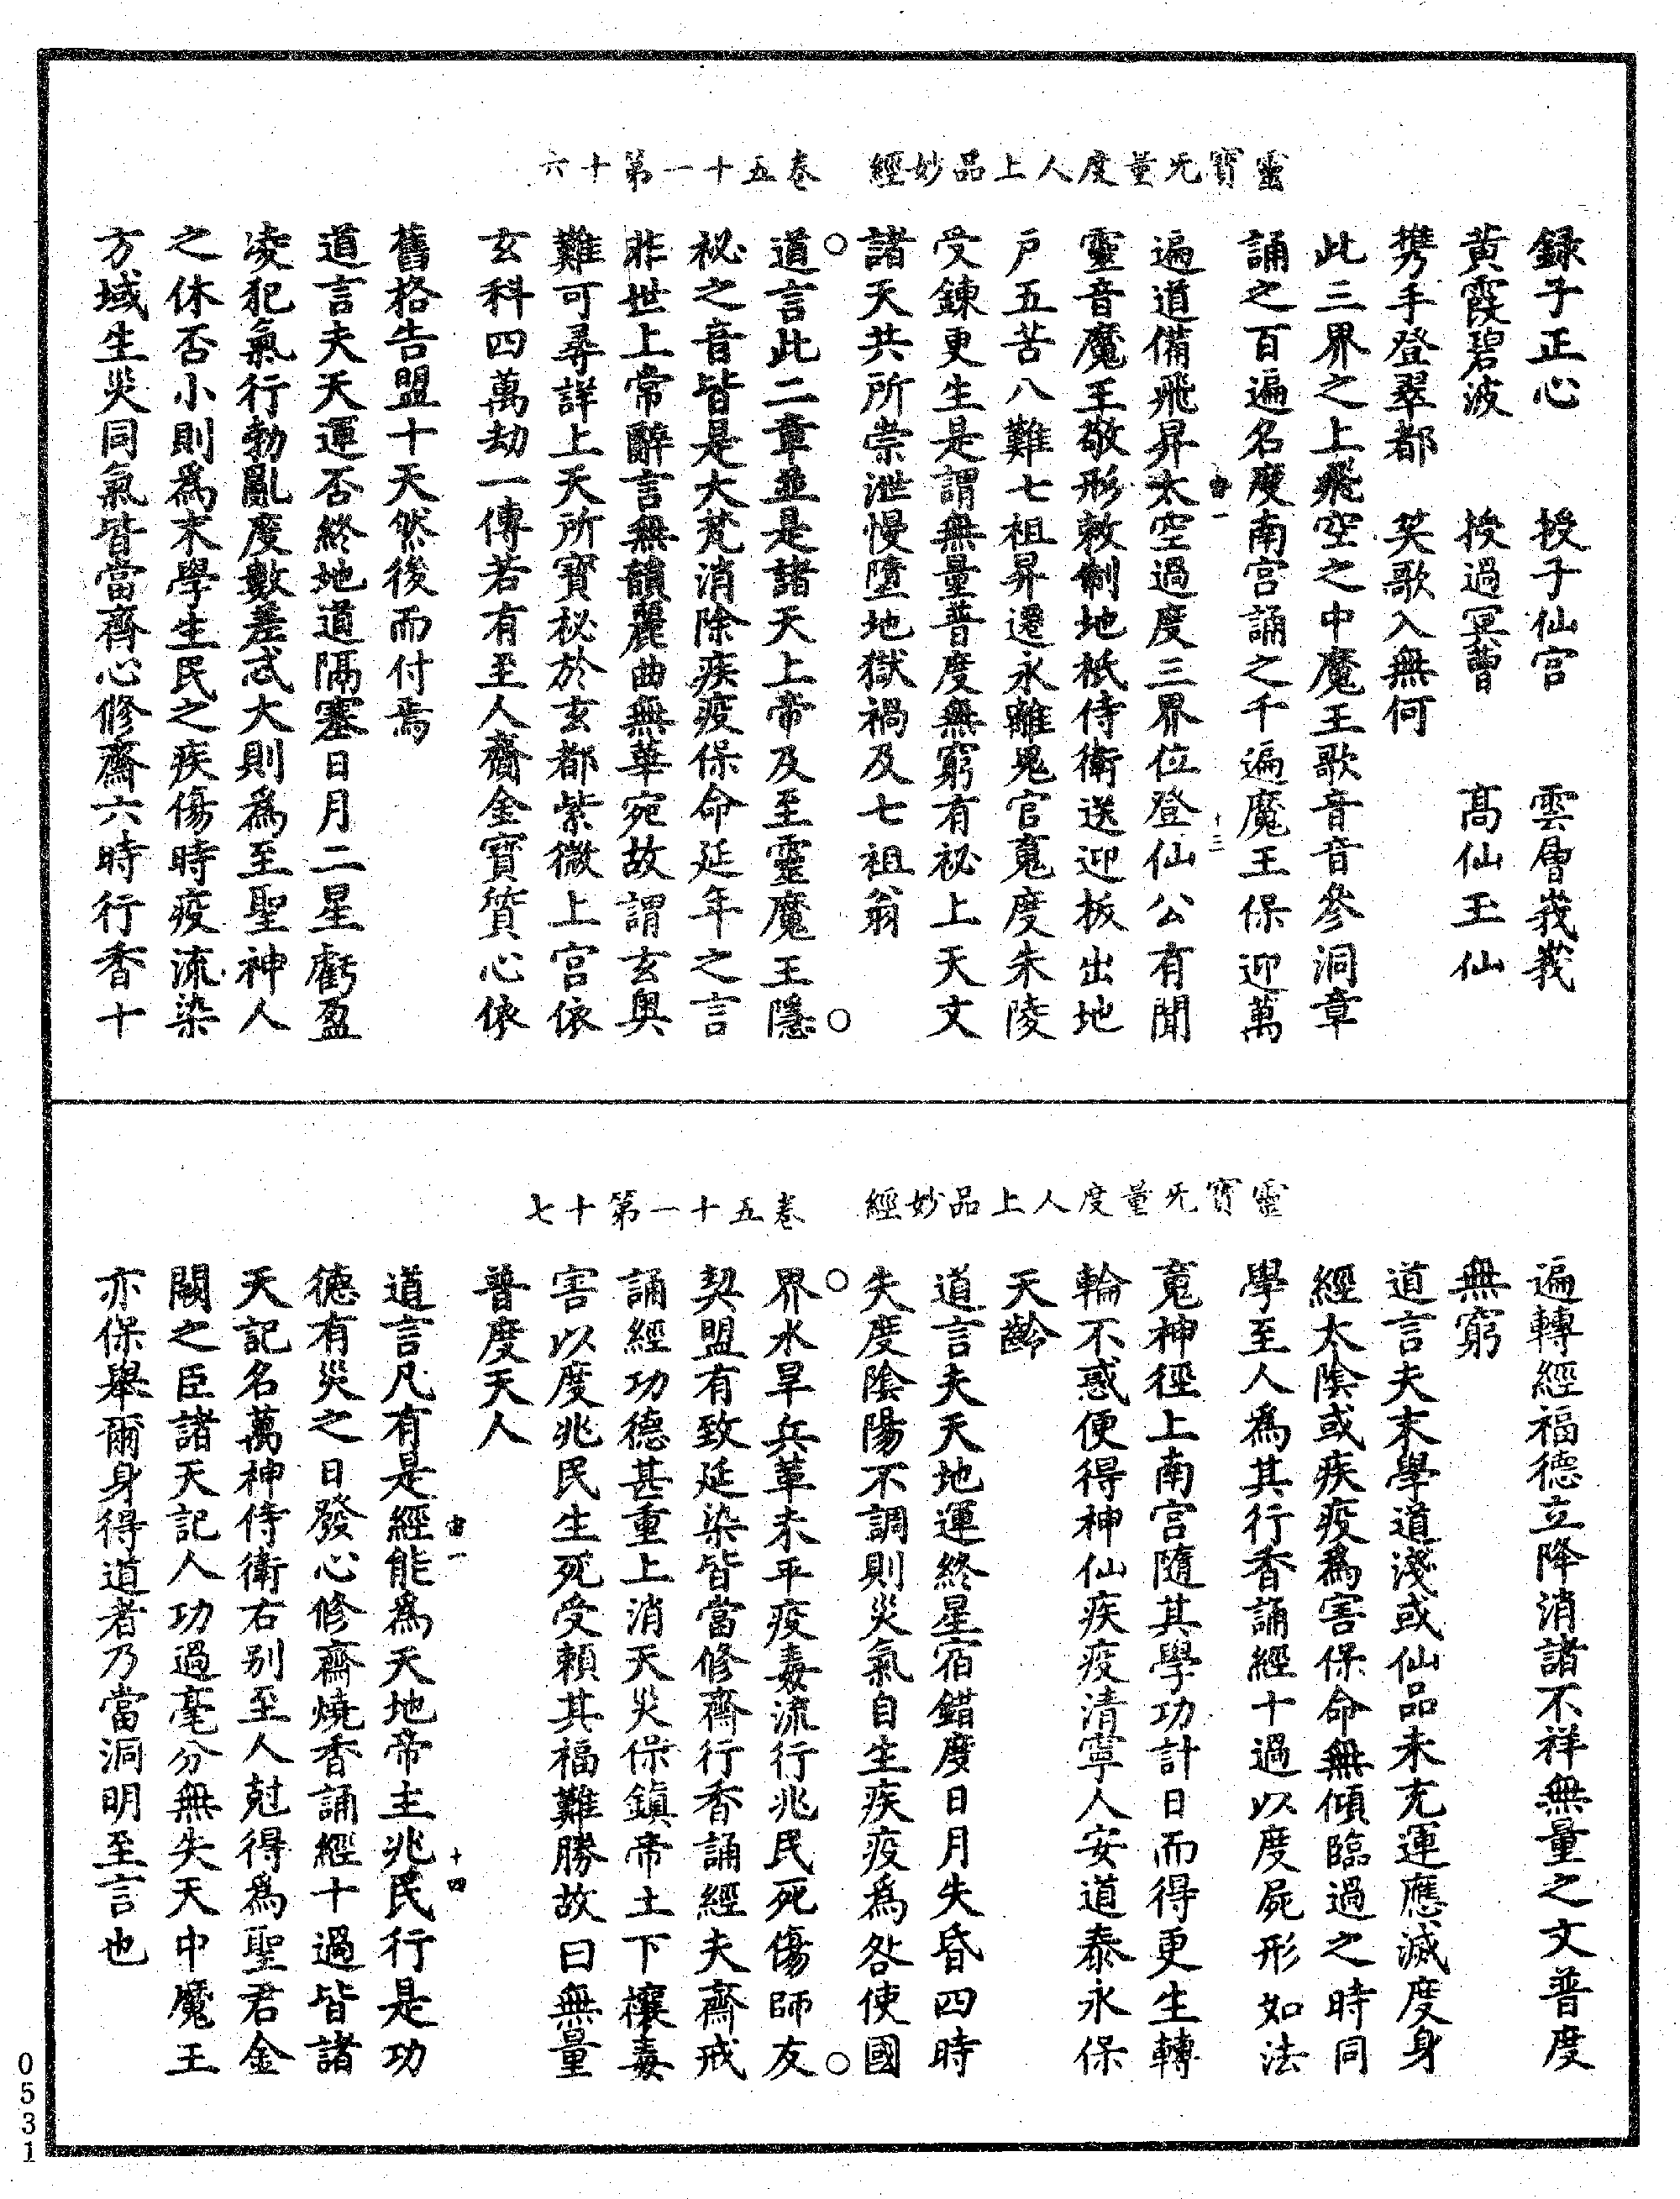 靈寶无量度人上品妙經　卷五十一第十六
録子正心　授子仙宫　雲層峩峩
黄霞碧波　授過冥曹　髙仙王仙
携手登翠都　笑歌入無何
此三界之上飛空之中魔王歌音音參洞章
誦之百遍名度南宫誦之千遍魔王保迎萬
宙一　十三
遍道備飛昇太空過度三界位登仙公有聞
靈音魔王敬形敕制地祇侍衛送迎拔出地
戸五苦八難七祖昇遷永離鬼官䰟度朱陵
受錬更生是謂無量普度無窮有祕上天文
諸天共所崇泄慢墮地獄禍及七祖翁
道言此二章並是諸天上帝及至靈魔王隱
祕之音皆是大梵消除疾疫保命延年之言
非世上常辭言無韻麗曲無華宛故謂玄奥
難可尋詳上天所寳秘於玄都紫微上宫依
玄科四萬劫一傳若有至人齎金寳質心依
舊格告盟十天然後而付焉
道言夫天運否終地道隔塞日月二星虧盈
凌犯氣行勃亂度數差忒大則爲至聖神人
之休否小則爲末學生民之疾傷時疫流染
方域生災同氣皆當齊心修齋六時行香十
靈寳无量度人上品妙經　卷五十一第十七
遍轉經福德立降消諸不祥無量之文普度
無窮
道言夫末學道淺或仙品未充運應滅度身
經太陰或疾疫爲害保命無傾臨過之時同
學至人爲其行香誦經十過以度屍形如法
䰟神徑上南宫隨其學功計日而得更生轉
輪不惑便得神仙疾疫清寧人安道泰永保
天齡
道言夫天地運終星宿錯度日月失昏四時
失度陰陽不調則災氣自生疾疫爲咎使國
界水旱兵革未平疫毒流行兆民死傷師友
契盟有致延染皆當修齋行香誦經夫齋戒
誦經功德甚重上消天災保鎮帝土下禳毒
害以度兆民生死受頼其福難勝故曰無量
普度天人
宙一　十四
道言凡有是經能爲天地帝主兆民行是功
德有災之日發心修齋燒香誦經十過皆諸
天記名萬神侍衛右别至人尅得爲聖君金
闕之臣諸天記人功過毫分無失天中魔王
亦保舉爾身得道者乃當洞明至言也
0531